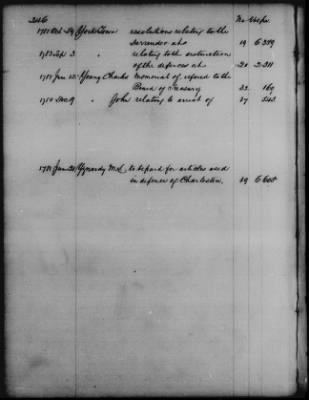 246 No Vol pa.
1781 Oct 29 Yorktown resolutions relating to the
surrender at 19 6 379
1783 Sep 3 " relating to the destruction
of the defences at 20 2 311
1781 Jun 12 Young Charles memorial of refered to the
Board of Treasury 32 169
1780 Dec 9 " John relating to arrest of 37 343
1781 Jun 21 to be paid for articles used
in defence of Charleston. 19 6 605